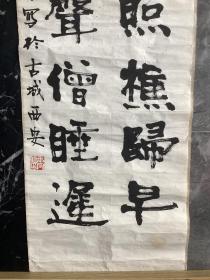 照樵歸早
聲僧睡遲
寫於古城西安